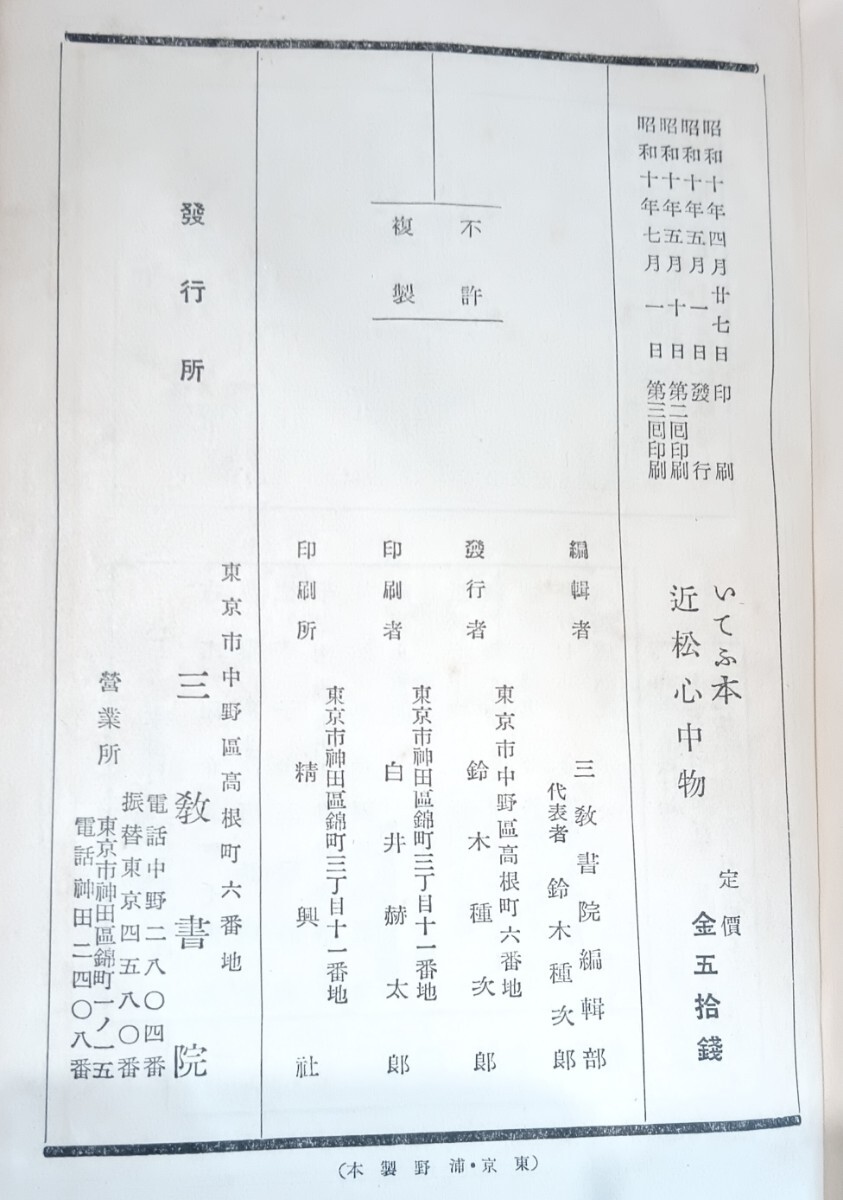 昭和十年四月廿七日印刷
昭和十年五月一日發行
昭和十年五月十日第二囘印刷
昭和十年七月一日第三囘印刷
いてふ本
近松心中物
定價
金五拾錢
不許
複製
編輯者
三敎書院編輯部
代表者 鈴木種次郎
發行者
東京市中野區高根町六番地
鈴木種次郎
印刷者
東京市神田區錦町三丁目十一番地
白井赫太郎
印刷所
東京市神田區錦町三丁目十一番地
精興社
發行所
東京市中野區高根町六番地
三敎書院
電話中野二八〇四番
振替東京四五八〇番
營業所
東京市神田區錦町一ノ一五
電話神田二四〇八番
(東京・浦野製本)